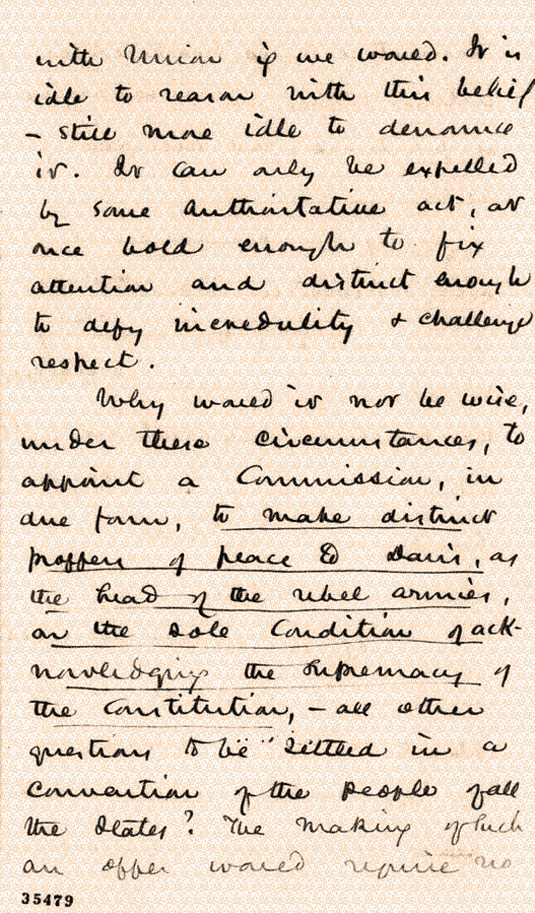 with Union if we would. It is
idle to reason with this belief
– still more idle to denounce
it. It can only be expelled
by some authoritative act, at
once bold enough to fix
attention and distinct enough
to defy incredulity & challenge
respect.
Why would it not be wise,
under these circumstances, to
appoint a Commission, in
due form, to make distinct
proffers of peace to Davis, as
the head of the rebel armies,
on the sole condition of ack-
nowledging the supremacy of
the Constitution, – all other
questions to be settled in a
convention of the people of all
the States? The making of such
an offer would require no
35479